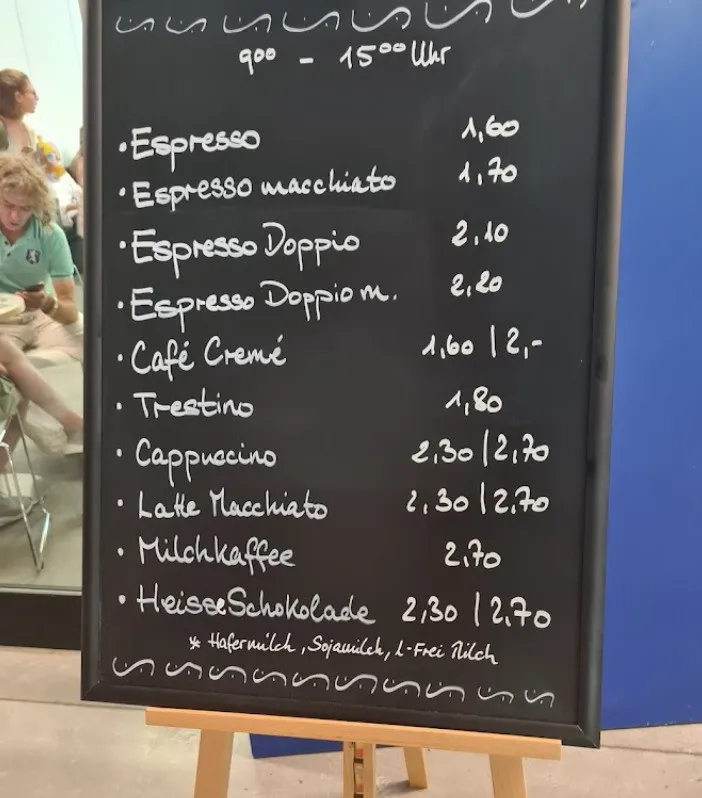 9⁰⁰ - 15⁰⁰ Uhr
• Espresso 1,60
• Espresso macchiato 1,70
• Espresso Doppio 2,10
• Espresso Doppio m. 2,20
• Café Cremé 1,60 | 2,-
• Trestino 1,80
• Cappuccino 2,30 | 2,70
• Latte Macchiato 2,30 | 2,70
• Milchkaffee 2,70
• Heisse Schokolade 2,30 | 2,70
* Hafermilch, Sojamilch, L-Frei Milch